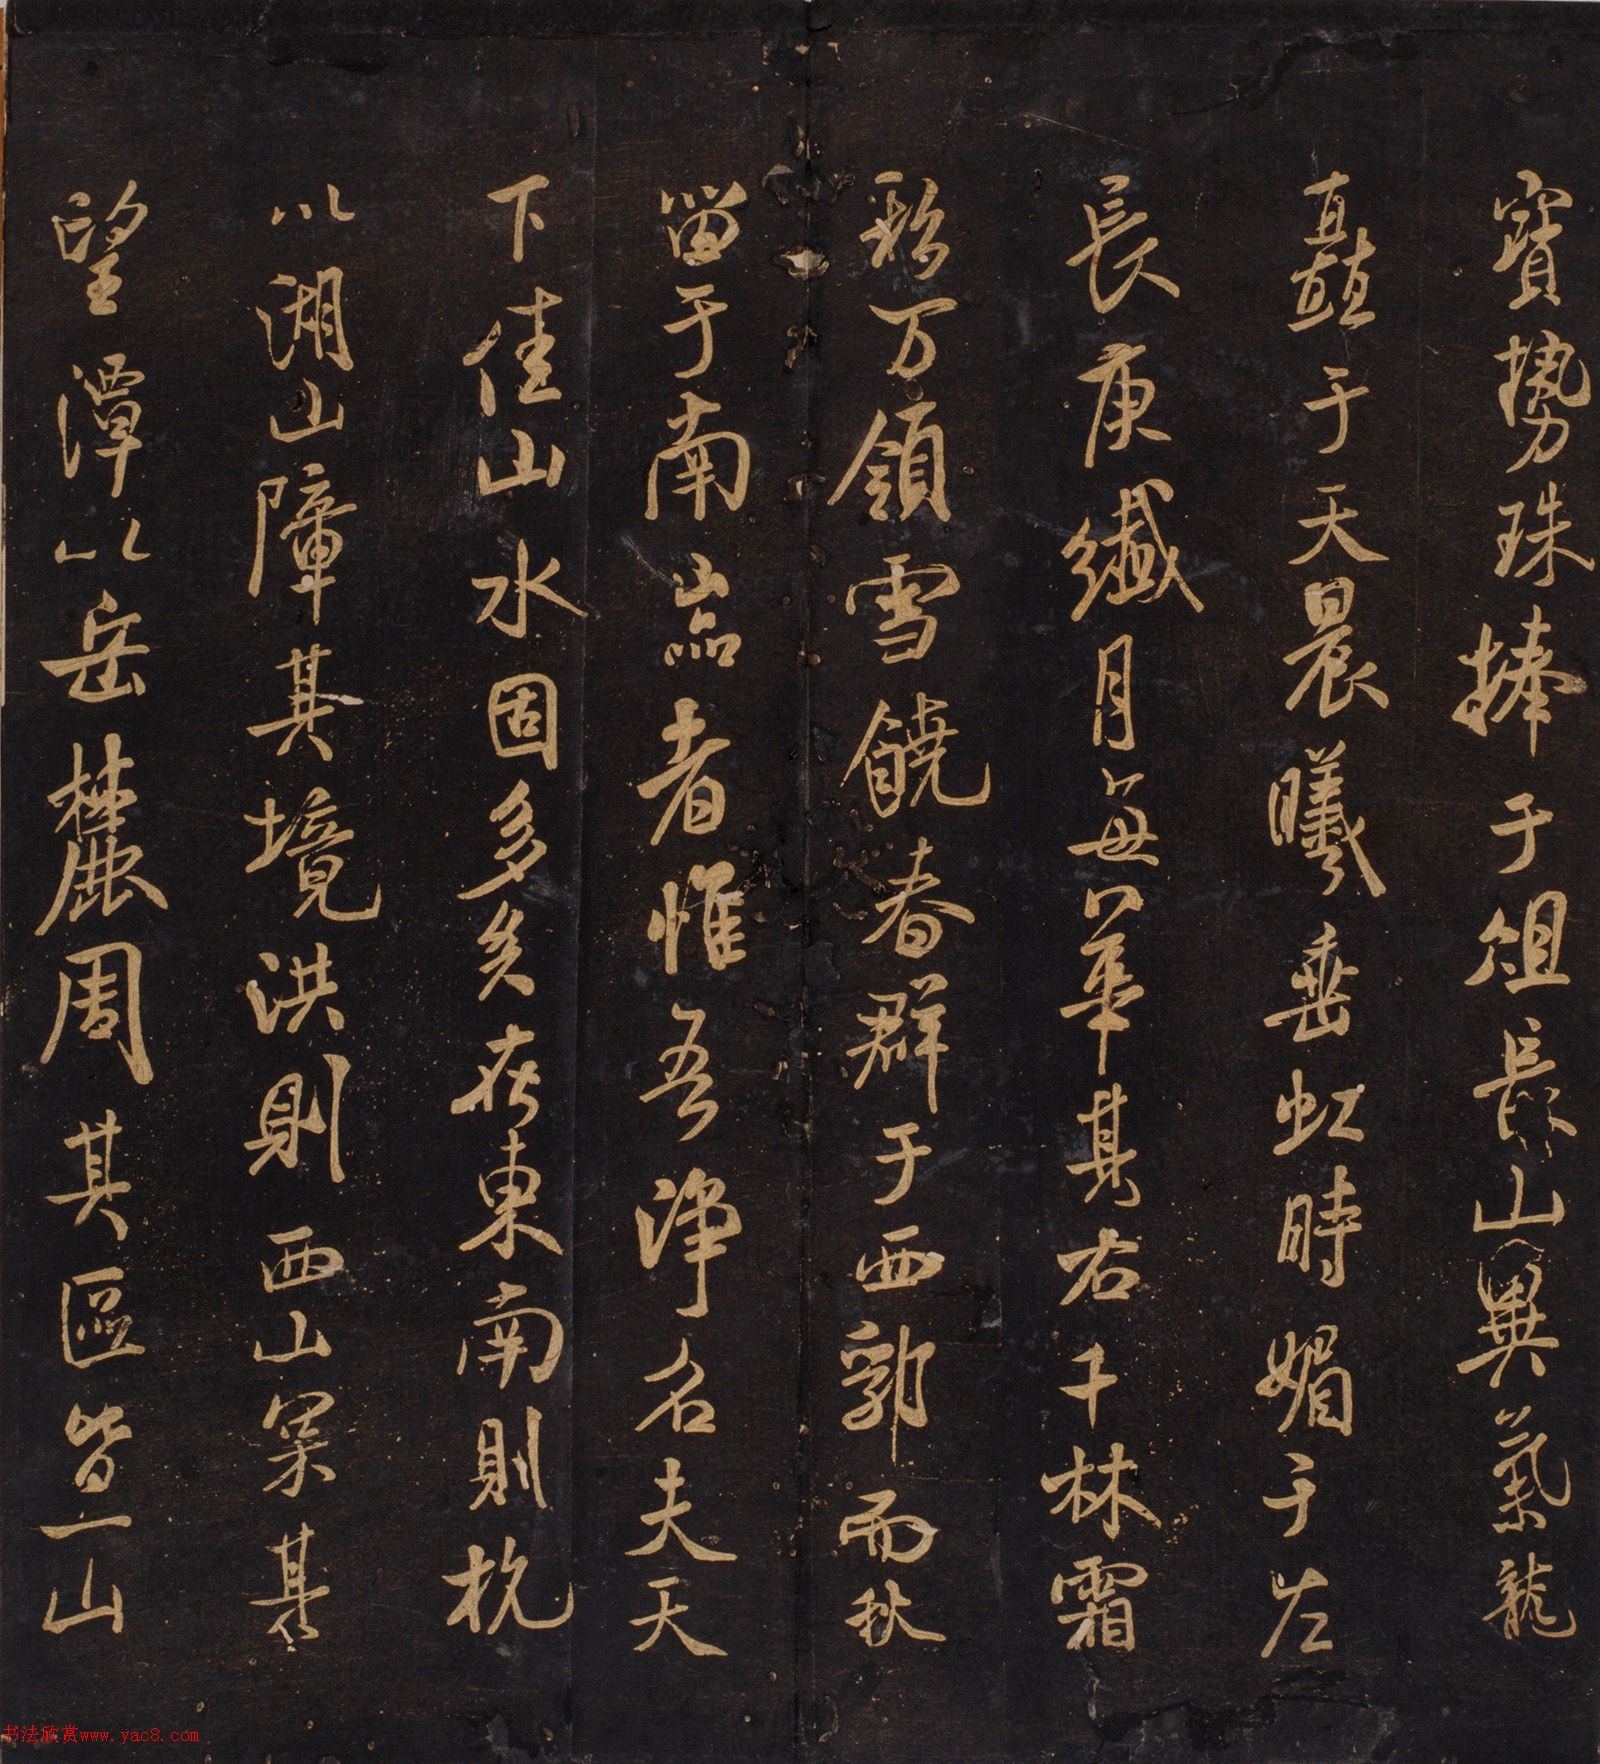 寳勢珠捧于俎長山異氣龍
矗于天晨曦垂虹時媚于左
長庚纖月每華其右千林霜
彩万領雪饒春群于西郭而秋
留于南崦者惟吾淨名夫天
下佳山水固多矣在東南則杭
以湖山障其境洪則西山罙其
望潭以岳麓周其區皆一山
书法欣赏www.yac8.com